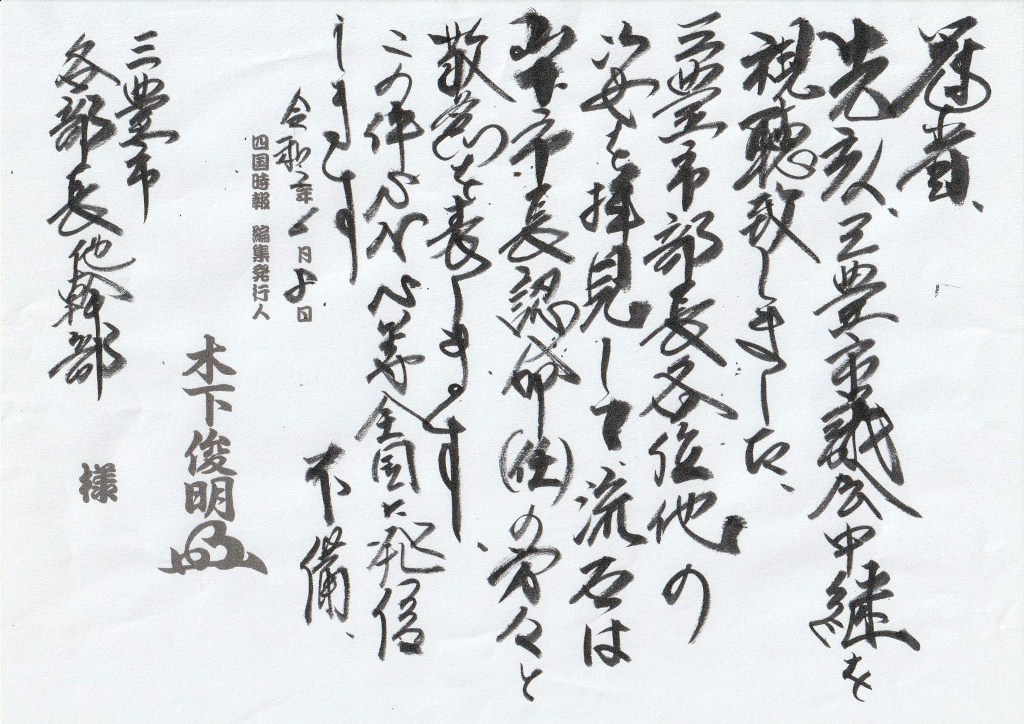 冠省、
先夜、三豊市議会中継を
視聴致しました、
三豊市部長各位他の
姿を拝見して、流石は
山下市長認命(任)の方々と
敬意を表します、
この件 全国に発信
します
不備、
令和二年 月 日
四国時報 編集発行人
木下俊明
三豊市
各部長他幹部 様